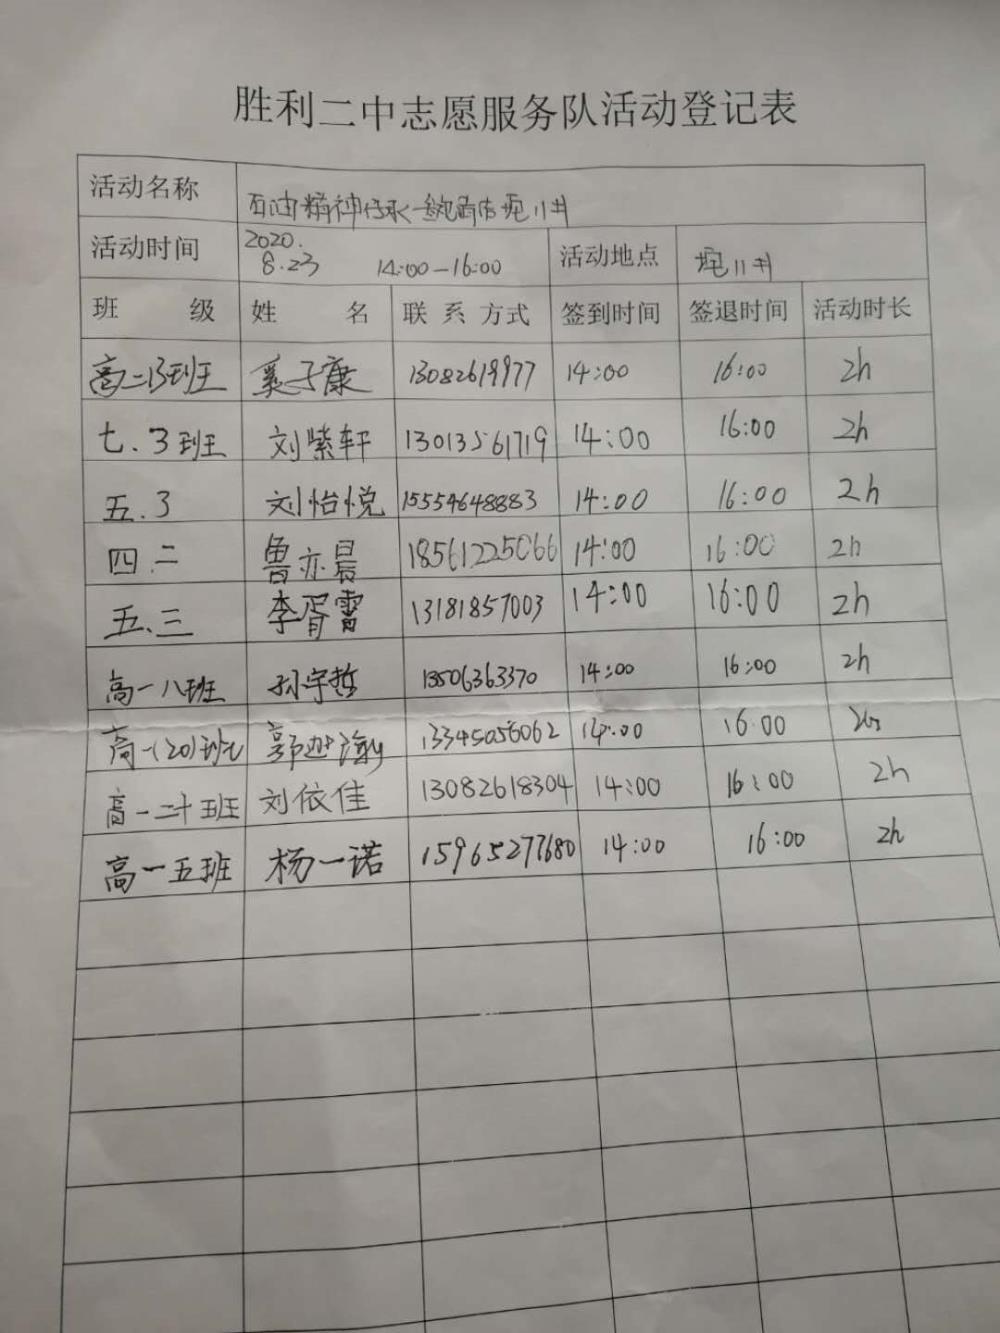 胜利二中志愿服务队活动登记表
活动名称 石油精神传承
活动时间 2020. 8.23 14:00-16:00 活动地点
班 级 姓 名 联 系 方式 签到时间 签退时间 活动时长
高二13班 奚子康 13082619977 14:00 16:00 2h
七.3班 刘紫轩 13013561719 14:00 16:00 2h
五.3 刘怡悦 15554648883 14:00 16:00 2h
四.二 鲁亦晨 18561225066 14:00 16:00 2h
五.三 李胥霄 13181857003 14:00 16:00 2h
高一八班 孙宇哲 13506363370 14:00 16:00 2h
高一(20)班 郭 13345056062 14:00 16:00 2h
高一二十班 刘依佳 13082618304 14:00 16:00 2h
高一五班 杨一诺 15965277680 14:00 16:00 2h